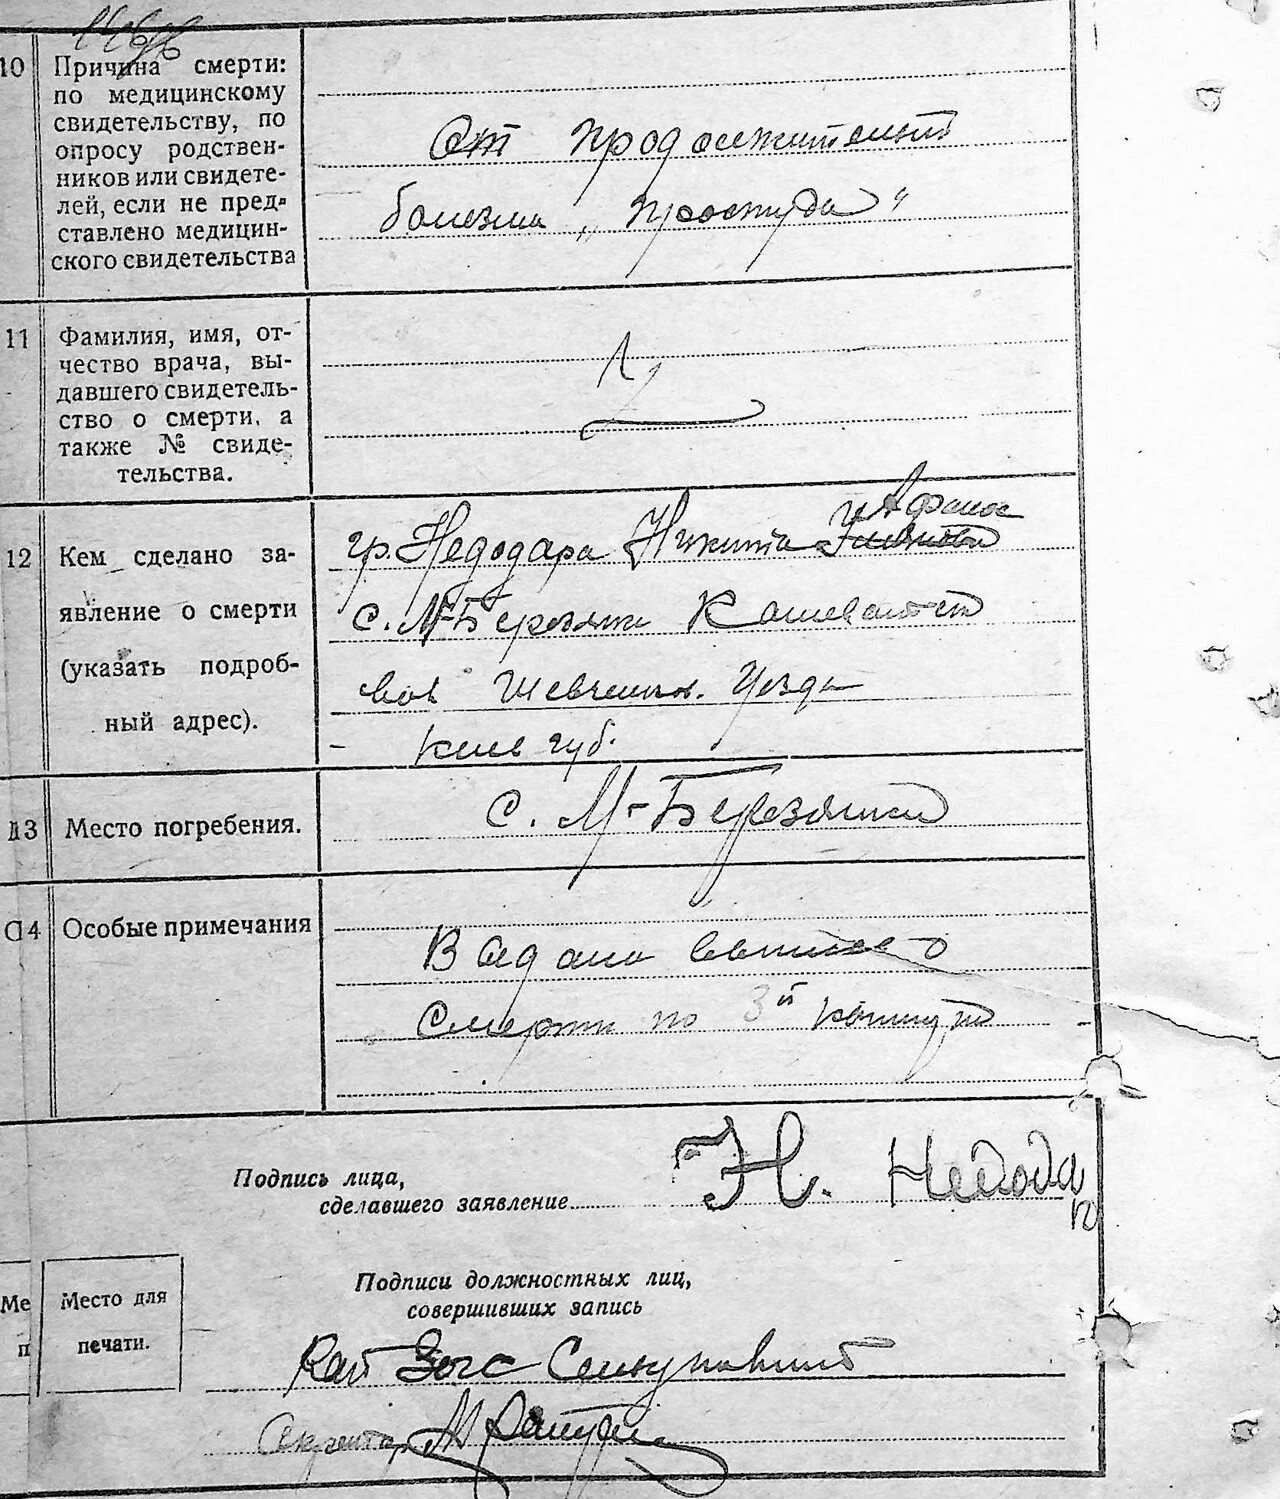 10
Причина смерти:
по медицинскому
свидетельству, по
опросу родствен-
ников или свидете-
лей, если не пред-
ставлено медицин-
ского свидетельства
От продолжительной
болезни „простуда“
11
Фамилия, имя, от-
чество врача, вы-
давшего свидетель-
ство о смерти, а
также № свиде-
тельства.
12
Кем сделано за-
явление о смерти
(указать подроб-
ный адрес).
Афанас
гр. Недодара Никита
с. М-Березянки Кошеватск
вол Шевченков. Уезда
Киев губ.
13
Место погребения.
с. М-Березянки
14
Особые примечания
Выдана выпись о
смерти по 3й
Подпись лица,
сделавшего заявление
Н. Недода
р
Подписи должностных лиц,
совершивших запись
Ме
п
Место для
печати.
Загс
Секретарь